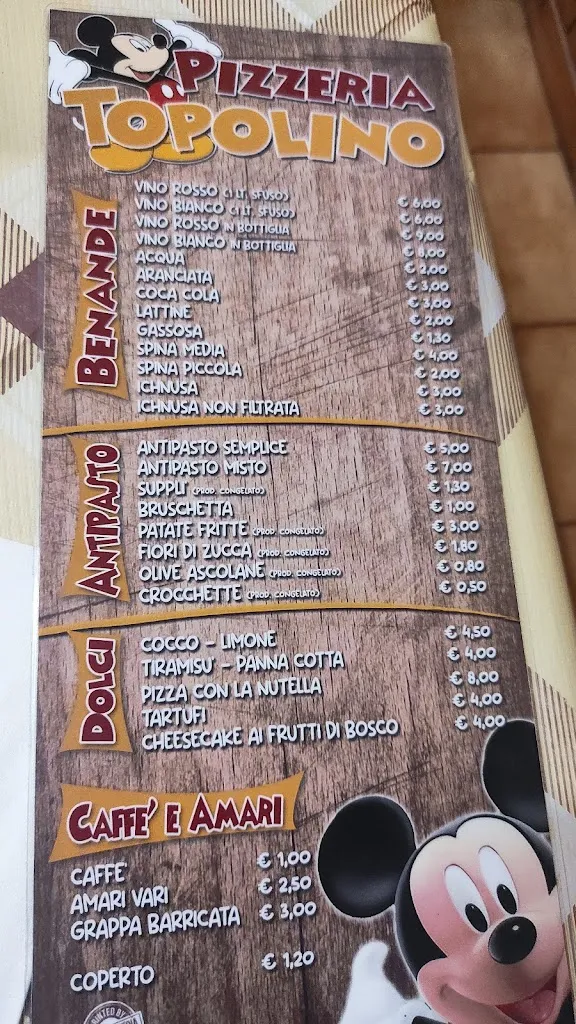 PIZZERIA
TOPOLINO
BENANDE
VINO ROSSO (1 LT. SFUSO) € 6,00
VINO BIANCO (1 LT. SFUSO) € 6,00
VINO ROSSO IN BOTTIGLIA € 9,00
VINO BIANCO IN BOTTIGLIA € 8,00
ACQUA € 2,00
ARANCIATA € 3,00
COCA COLA € 3,00
LATTINE € 2,00
GASSOSA € 1,30
SPINA MEDIA € 4,00
SPINA PICCOLA € 2,00
ICHNUSA € 3,00
ICHNUSA NON FILTRATA € 3,00
ANTIPASTO
ANTIPASTO SEMPLICE € 5,00
ANTIPASTO MISTO € 7,00
SUPPLI' (PROD. CONGELATO) € 1,30
BRUSCHETTA € 1,00
PATATE FRITTE (PROD. CONGELATO) € 3,00
FIORI DI ZUCCA (PROD. CONGELATO) € 1,80
OLIVE ASCOLANE (PROD. CONGELATO) € 0,80
CROCCHETTE (PROD. CONGELATO) € 0,50
DOLCI
COCCO - LIMONE € 4,50
TIRAMISU' - PANNA COTTA € 4,00
PIZZA CON LA NUTELLA € 8,00
TARTUFI € 4,00
CHEESECAKE AI FRUTTI DI BOSCO € 4,00
CAFFE' E AMARI
CAFFE' € 1,00
AMARI VARI € 2,50
GRAPPA BARRICATA € 3,00
COPERTO € 1,20
PRINTED BY